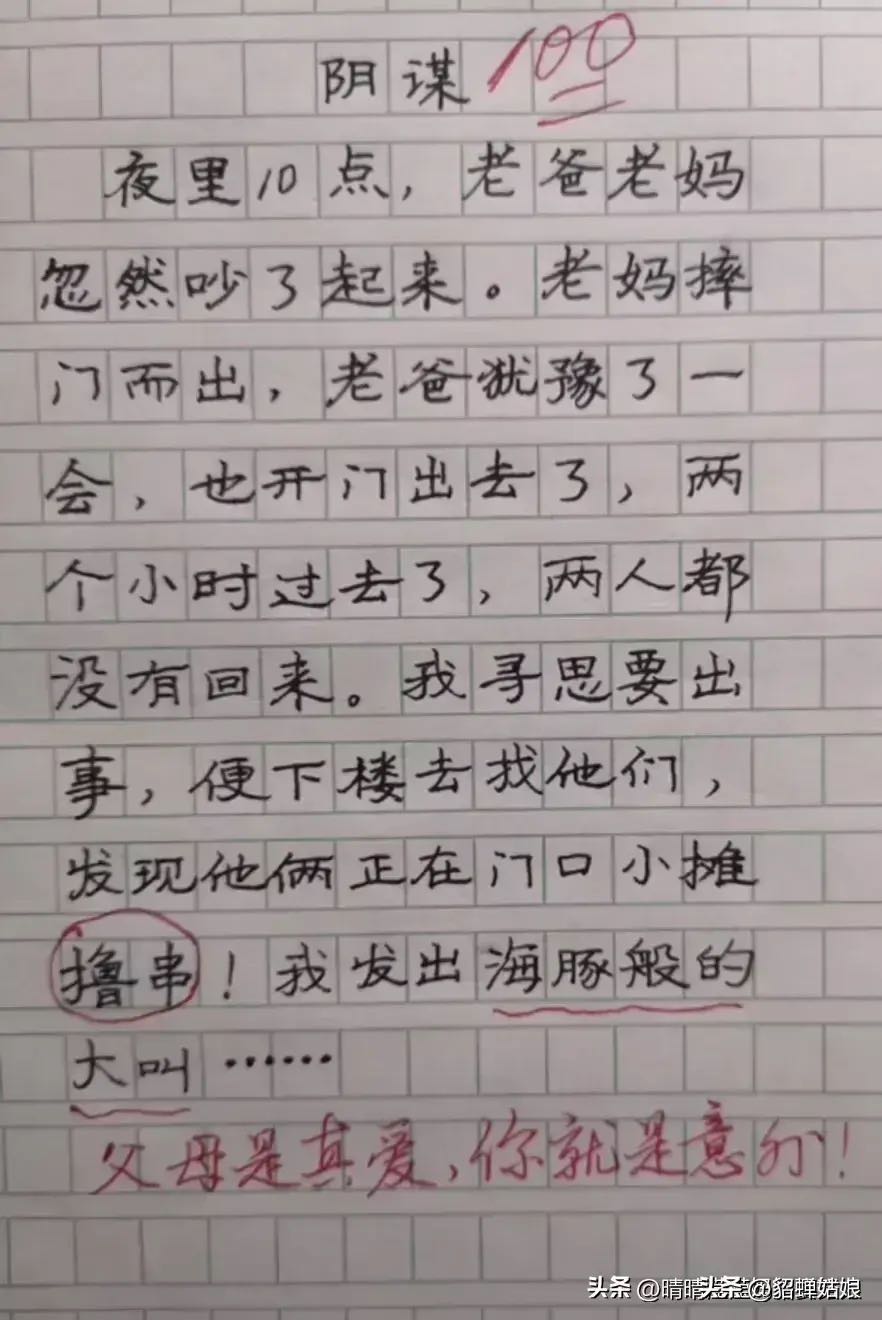 阴谋 100
夜里10点，老爸老妈
忽然吵了起来。老妈摔
门而出，老爸犹豫了一
会，也开门出去了，两
个小时过去了，两人都
没有回来。我寻思要出
事，便下楼去找他们，
发现他俩正在门口小摊
撸串！我发出海豚般的
大叫……
父母是真爱，你就是意外！
头条 @晴晴 头条 @貂蝉姑娘